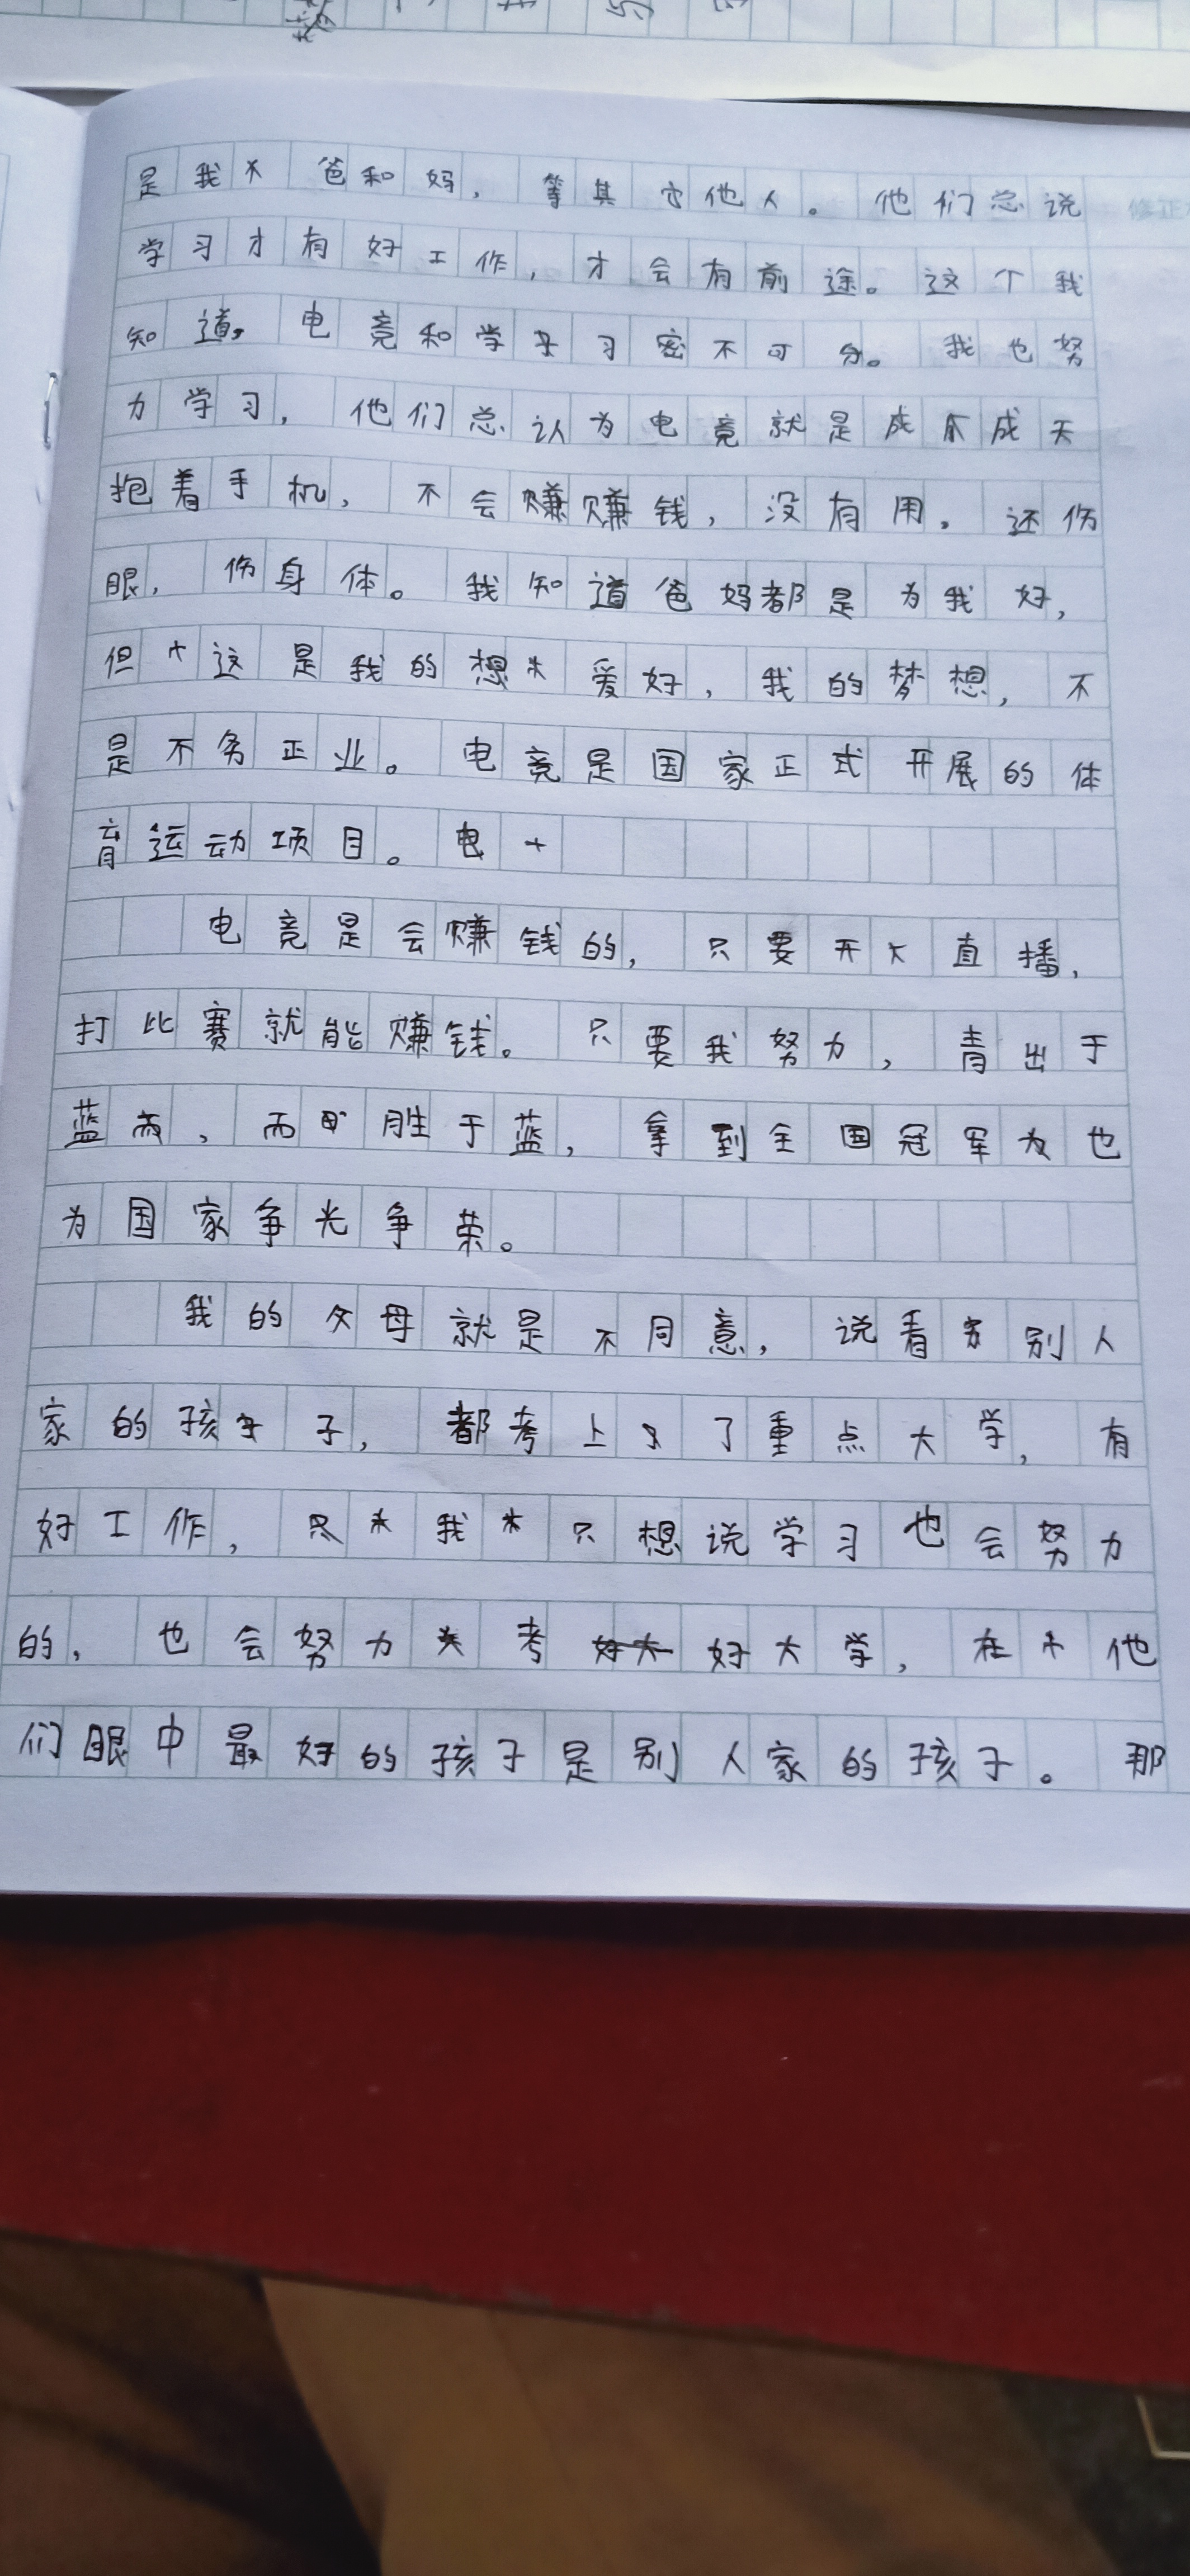 是我 爸和妈，等其他人。他们总说
学习才有好工作，才会有前途。这个我
知道，电竞和学习密不可分。我也努
力学习，他们总认为电竞就是成天
抱着手机，不会赚钱，没有用。还伤
眼，伤身体。我知道爸妈都是为我好，
但这是我的爱好，我的梦想，不
是不务正业。电竞是国家正式开展的体
育运动项目。
电竞是会赚钱的，只要开直播，
打比赛就能赚钱。只要我努力，青出于
蓝，而胜于蓝，拿到全国冠军也
为国家争光争荣。
我的父母就是不同意，说看别人
家的孩子，都考上了重点大学，有
好工作，我只想说学习也会努力
的，也会努力考好大学，在他
们眼中最好的孩子是别人家的孩子。那